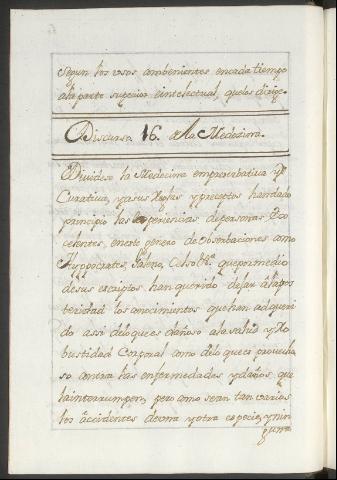 segun los usos combenientes encada tiempo
ala parte superior eintelectual, quelos dirige.
Discurso 16. de la Medezina.
Dividese la Medecina enpreserbativa y
Curativa, yasus Reglas y preceptos handado
principio las experiencias depersonas Exce
celentes, eneste genero de obserbaciones como
Hyppocrates, Galeno, Celso &.ª quepormedio
desus escriptos han querido dejar àlapos
teridad los conocimientos quehan adqueri
do assi delo quees dañoso ala salud y Ro
bustidad Corporal como delo quees provecho
so contra las enfermedades ydaños que
lainterrumpen, pero como sean tan varios
los àccidentes deuna yotra especie, y nin
guna